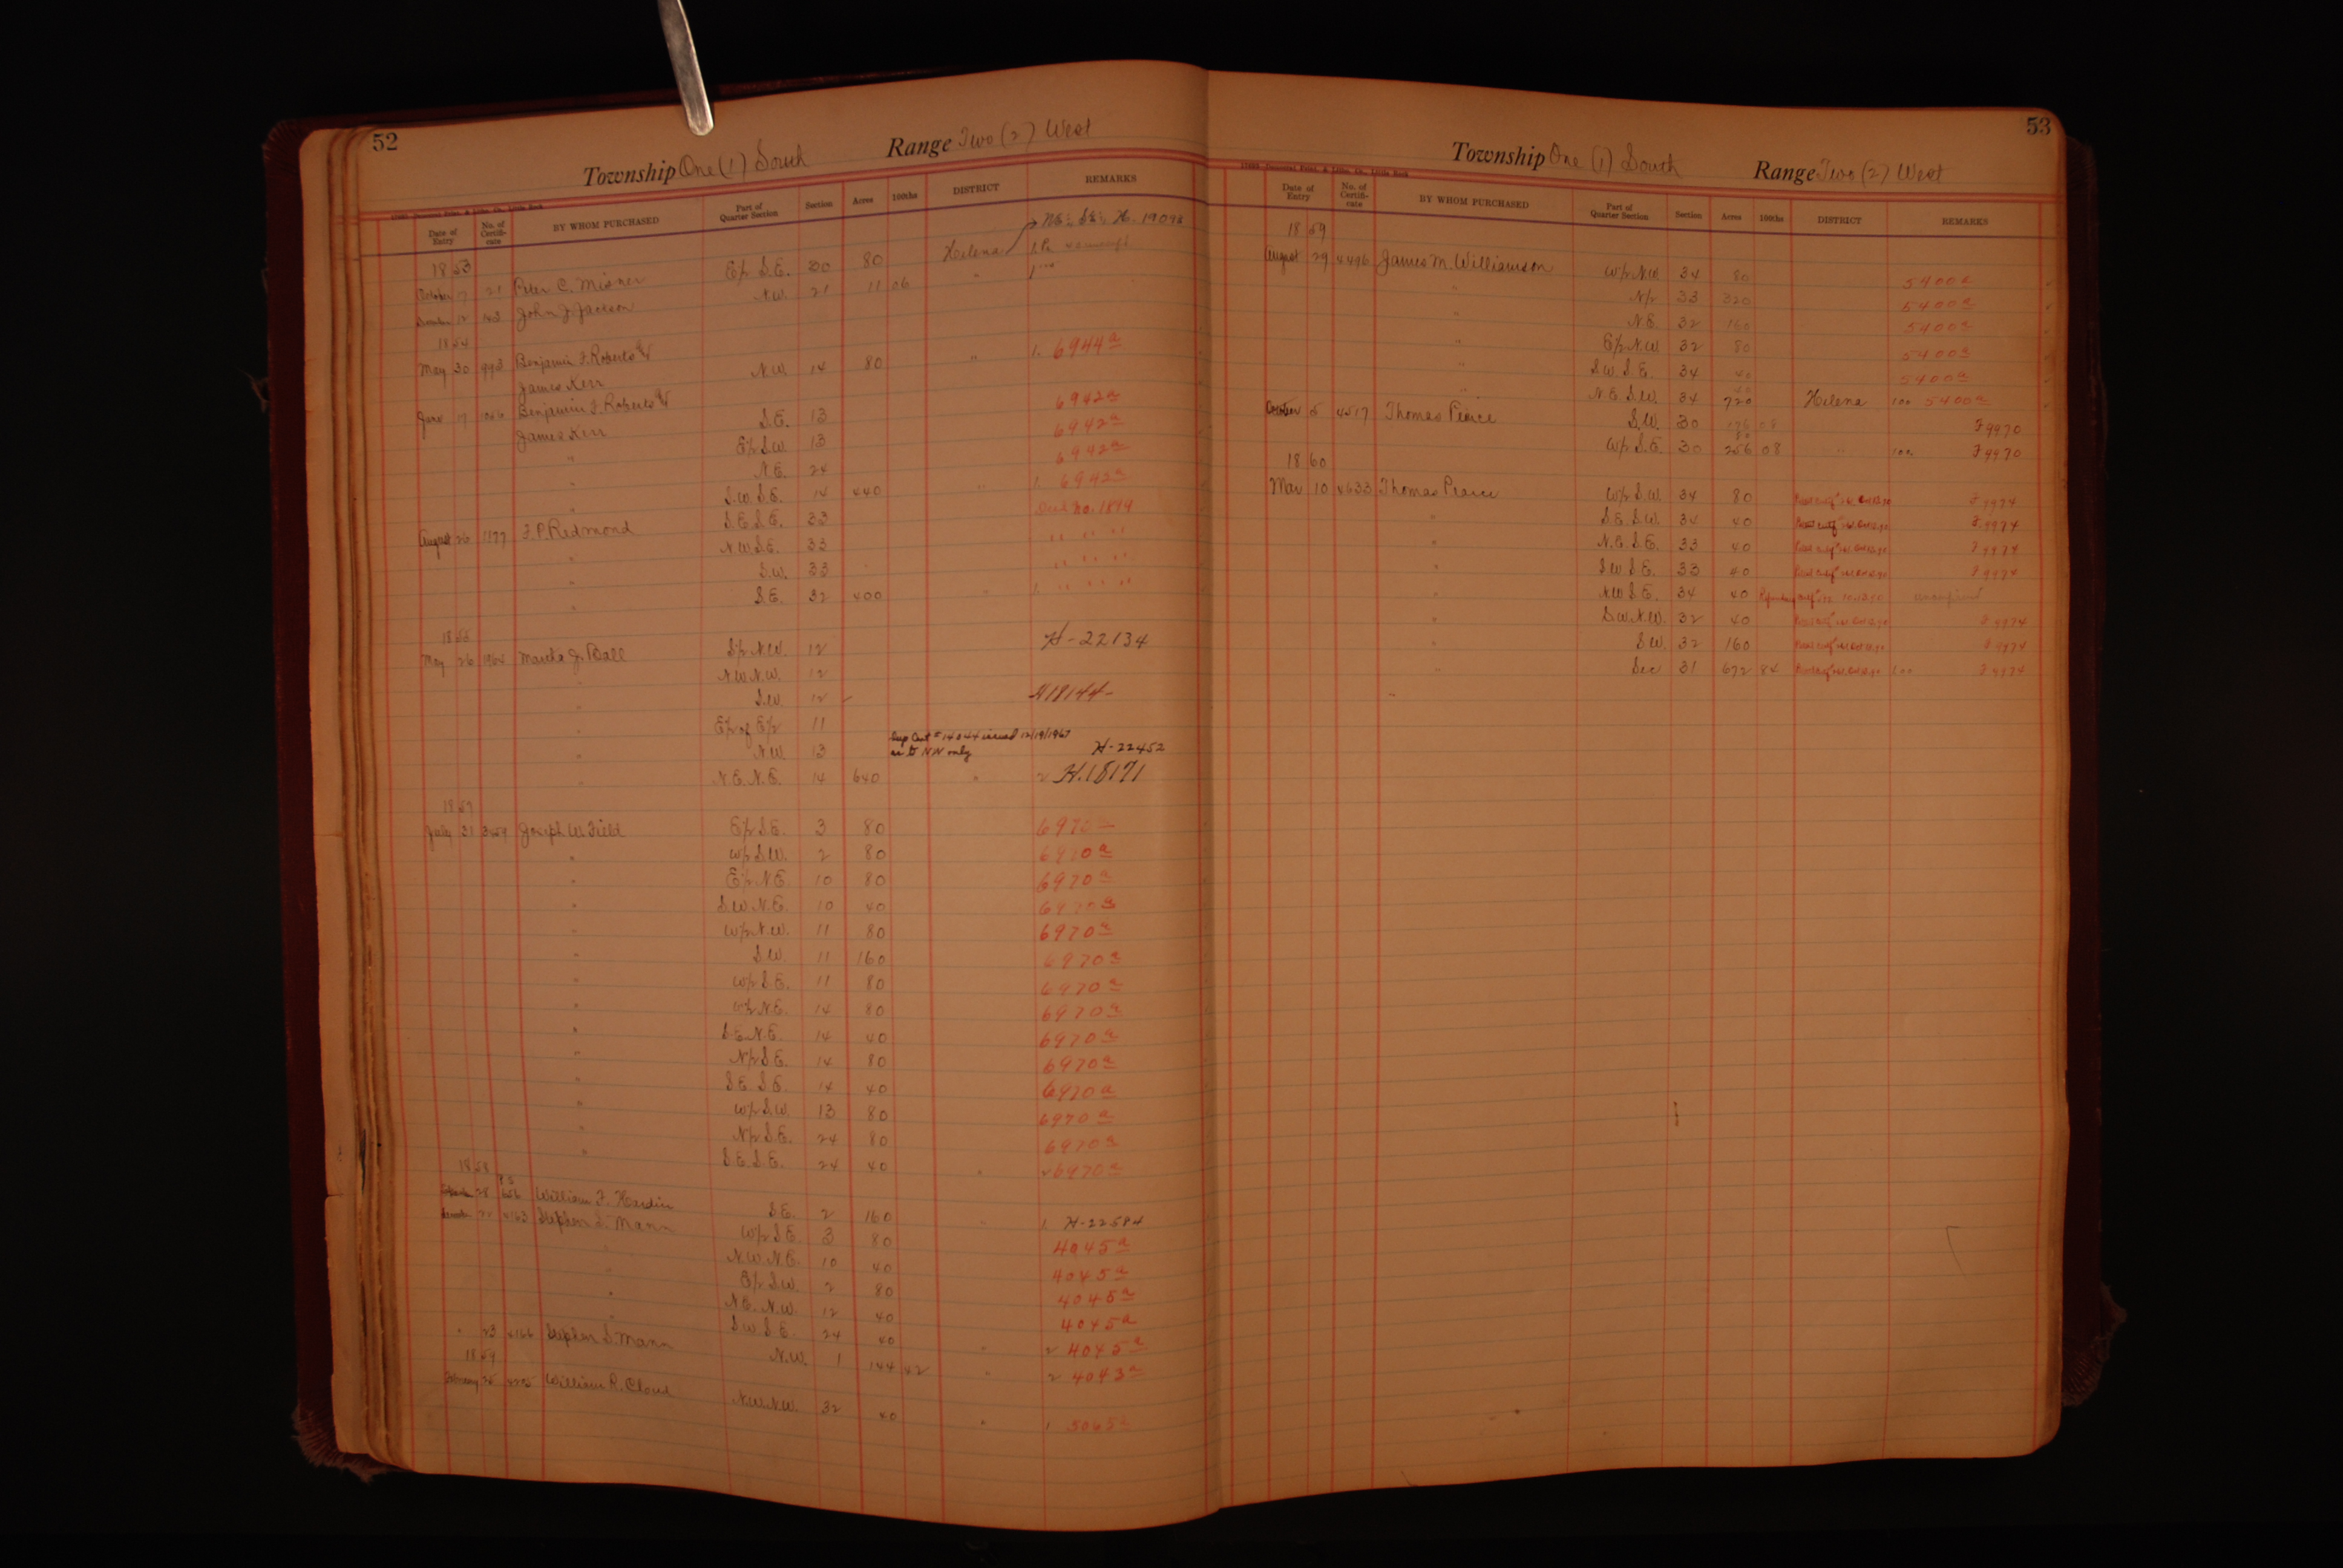 52
Township One (1) South Range Two (2) West
Date of Entry No. of Certifi-cate BY WHOM PURCHASED Part of Quarter Section Section Acres 100ths DISTRICT REMARKS
1853
October 7 21 Peter C. Misner E½ S.E. 30 80 Helena
12 143 John J. Jackson N.W. 21 11 06 "
1854
May 30 993 Benjamin F. Roberts &
James Kerr N.W. 14 80 " 1. 6944a
June 17 1046 Benjamin F. Roberts &
James Kerr S.E. 13 6942a
" E½ S.W. 13 6942a
" N.E. 24 6942a
" S.W. S.E. 14 440 " 1. 6942a
August 26 1177 F. P. Redmond S.E. S.E. 33
" N.W. S.E. 33 " " "
" S.W. 33 " " "
" S.E. 32 400 " 1. " " "
1855
May 26 1964 Martha J. Ball S½ N.W. 12 H-22134
" N.W. N.W. 12
" S.W. 12 H18144-
" E½ of E½ 11
Sup Cert #14044 issued 12/19/1967
as to NW only
" N.W. 13 H-22452
" N.E. N.E. 14 640 " 2 H.18171
1857
July 31 3459 Joseph W. Field E½ S.E. 3 80 6970a
" W½ S.W. 2 80 6970a
" E½ N.E. 10 80 6970a
" S.W. N.E. 10 40 6970a
" W½ N.W. 11 80 6970a
" S.W. 11 160 6970a
" W½ S.E. 11 80 6970a
" W½ N.E. 14 80 6970a
" S.E. N.E. 14 40 6970a
" N½ S.E. 14 80 6970a
" S.E. S.E. 14 40 6970a
" W½ S.W. 13 80 6970a
" N½ S.E. 24 80 6970a
" S.E. S.E. 24 40 " 6970a
1858
28 William F. Hardin S.E. 2 160 " 1. H-22584
22 4163 Stephen S. Mann W½ S.E. 3 80 4045a
" N.W. N.E. 10 40 4045a
" E½ S.W. 2 80 4045a
" N.E. N.W. 12 40 4045a
" S.W. S.E. 24 40 " 2 4045a
" 23 4166 Stephen S. Mann N.W. 1 144 42 " 2 4043a
1859
February 25 William R. Cloud N.W. N.W. 32 40 " 1 5065a
53
Township One (1) South Range Two (2) West
Date of Entry No. of Certifi-cate BY WHOM PURCHASED Part of Quarter Section Section Acres 100ths DISTRICT REMARKS
1859
August 29 4496 James M. Williamson W½ N.W. 34 80 5400a
" N½ 33 320 5400a
" N.E. 32 160 5400a
" E½ N.W. 32 80 5400a
" S.W. S.E. 34 40 5400a
" N.E. S.W. 34 40 720 Helena 100 5400a
October 5 4517 Thomas Pearce S.W. 30 176 08 F9970
W½ S.E. 30 80 256 08 " 100 F9970
1860
Mar 10 4633 Thomas Pearce W½ S.W. 34 80 F 9974
" S.E. S.W. 34 40 F.9974
" N.E. S.E. 33 40 F 9974
" S.W. S.E. 33 40 F 9974
" N.W. S.E. 34 40
" S.W. N.W. 32 40 F 9974
" S.W. 32 160 F 9974
" Sec 31 672 84 100 F 9974
"